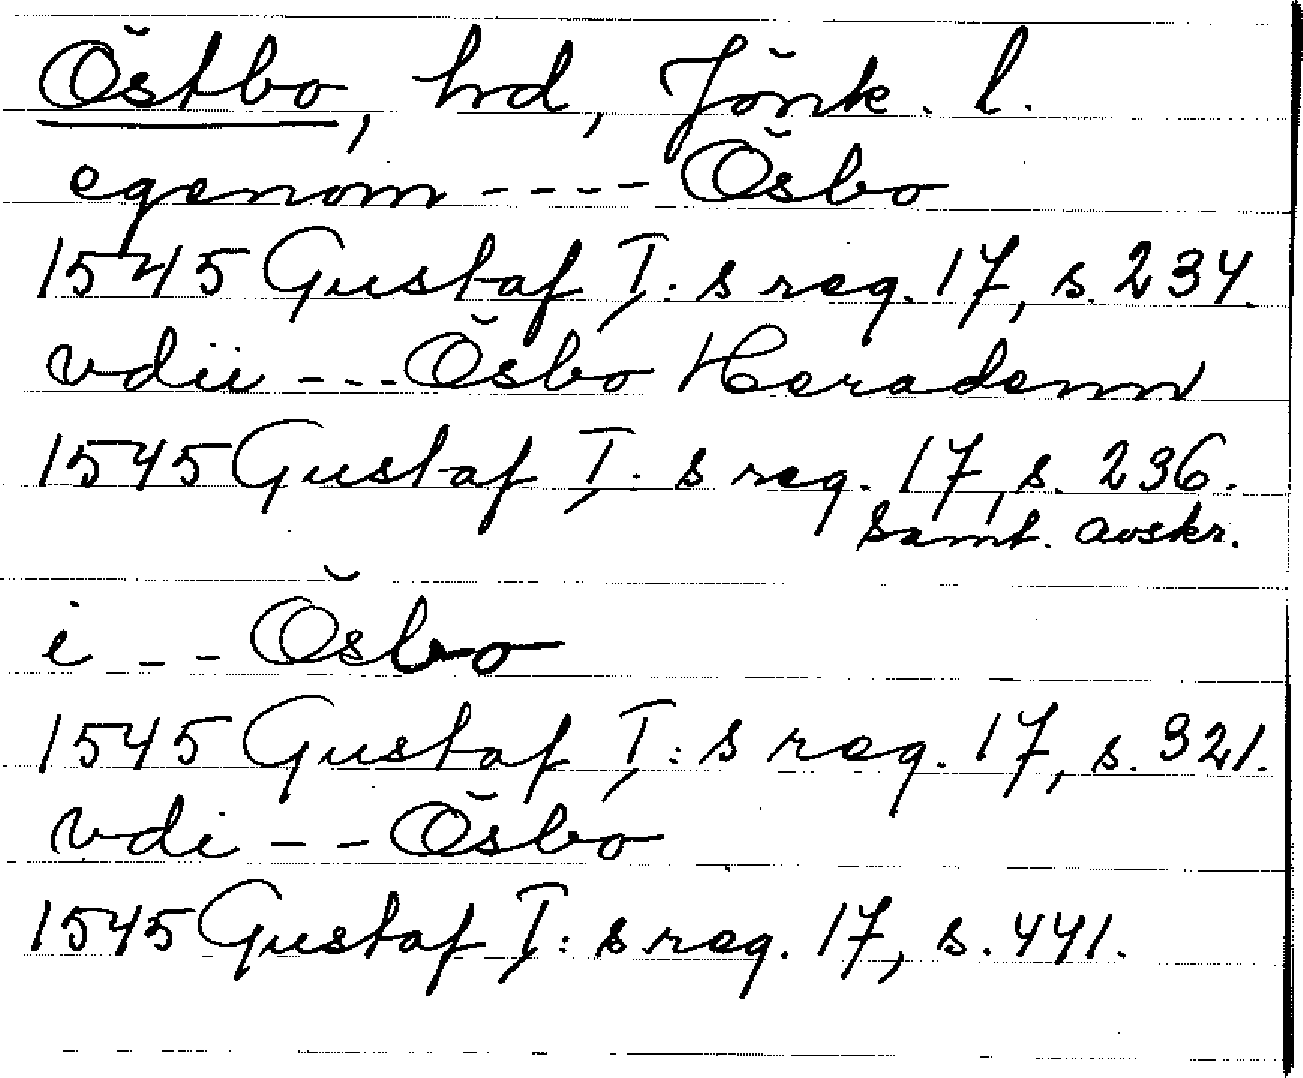 Östbo, hrd, Jönk. l.
egenom ---- Ösbo
1545 Gustaf I: s reg. 17, s. 234.
vdii --- Ösbo Heradenn
1545 Gustaf I: s reg. 17, s. 236.
samt. avskr.
i -- Ösbo
1545 Gustaf I: s reg. 17, s. 321.
vdi -- Ösbo
1545 Gustaf I: s reg. 17, s. 441.